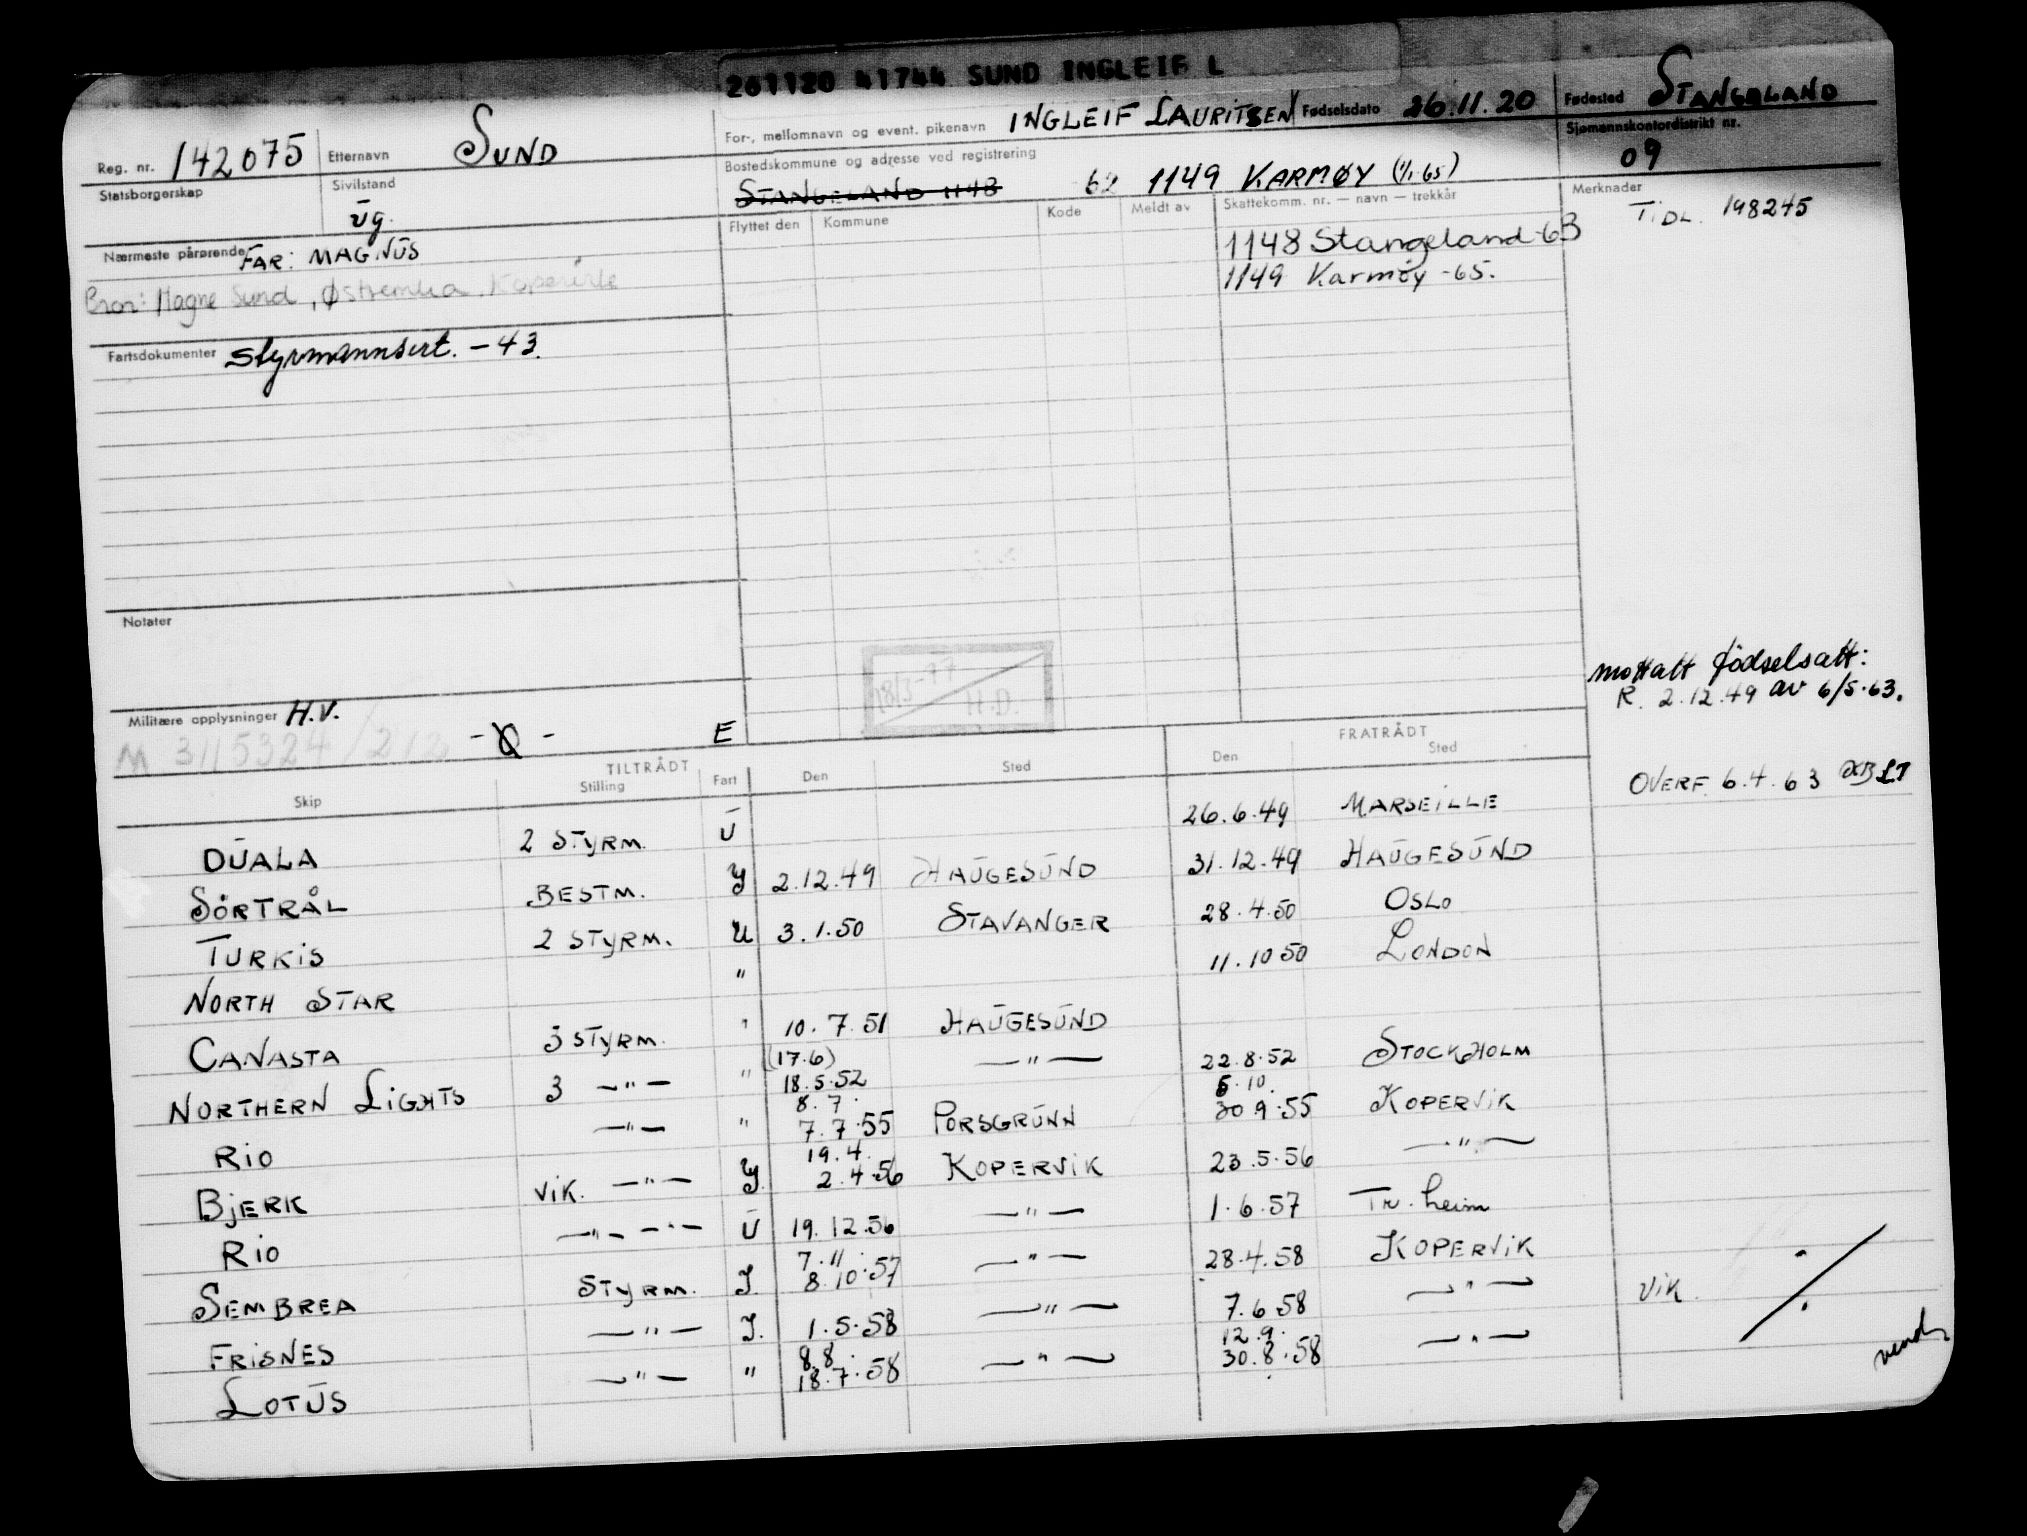 261120 41744 SUND INGLEIF L
Reg. nr. 142075 Etternavn SUND For-, mellomnavn og event. pikenavn INGLEIF LAURITSEN Fødselsdato 26.11.20 Fødested STANGELAND
Statsborgerskap Sivilstand ug. Bostedskommune og adresse ved registrering STANGELAND 1148 62 1149 KARMØY (1/1 65) Sjømannskontordistrikt nr. 09
Nærmeste pårørende FAR: MAGNUS Flyttet den Kommune Kode Meldt av Skattekomm. nr. — navn — trekkår Merknader TIDL. 198245
Bror: Magne Sund, 1148 Stangeland -63
1149 Karmøy -65.
Fartsdokumenter styrmannsert. - 43.
Notater
18/3-77 H.D.
mottatt fødselsatt:
R. 2.12.49 av 6/5.63.
Militære opplysninger H.V.
M 3115324/212 E
OVERF. 6.4.63
TILTRÅDT FRATRÅDT
Skip Stilling Fart Den Sted Den Sted
DUALA 2 STYRM. U 26.6.49 MARSEILLE
SÖRTRÅL BESTM. Y 2.12.49 HAUGESUND 31.12.49 HAUGESUND
TURKIS 2 STYRM. U 3.1.50 STAVANGER 28.4.50 OSLO
NORTH STAR " 11.10 50 LONDON
CANASTA 3 STYRM. " 10.7.51 HAUGESUND
NORTHERN LIGHTS 3 —"— " (17.6) 18.5.52 —"— 22.8.52 STOCKHOLM
RIO —"— " 8.7. 7.7.55 PORSGRUNN 5.10. 30.9.55 KOPERVIK
BJERK VIK. —"— Y. 19.4. 2.4.56 KOPERVIK 23.5.56 —"—
RIO —"— —"— U 19.12.56 —"— 1.6.57 Tr.heim
SEMBREA STYRM. I. 7.11. 8.10.57 —"— 28.4.58 KOPERVIK
FRISNES —"— I. 1.5.58 —"— 7.6.58 —"— VIK.
LOTUS —"— " 8.8. 18.7.58 —"— 12.9. 30.8.58 —"—
vend